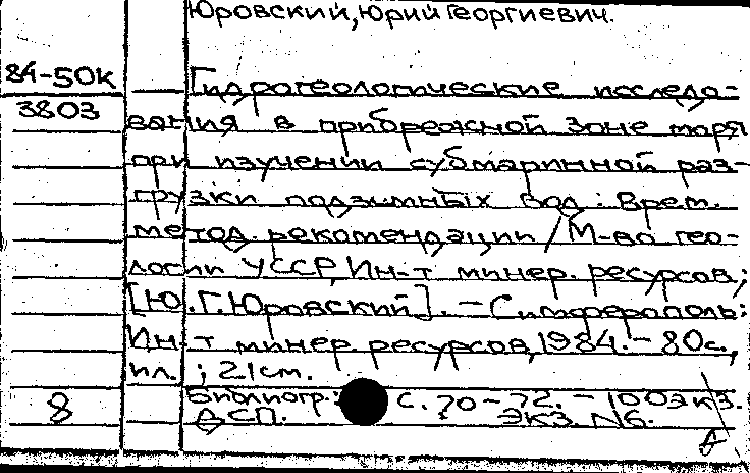 Юровский, Юрий Георгиевич.
84-50К
3803
Гидрогеологические исследо-
вания в прибрежной зоне моря
при изучении субмаринной раз-
грузки подземных вод : Врем.
метод. рекомендации / М-во гео-
логии УССР, Ин-т минер. ресурсов;
[Ю.Г. Юровский]. – Симферополь:
Ин-т минер. ресурсов, 1984. – 80с.,
ил. ; 21см.
8
Библиогр.: С. 70–72. – 100 экз.
ДСП. ЭКЗ. N6.